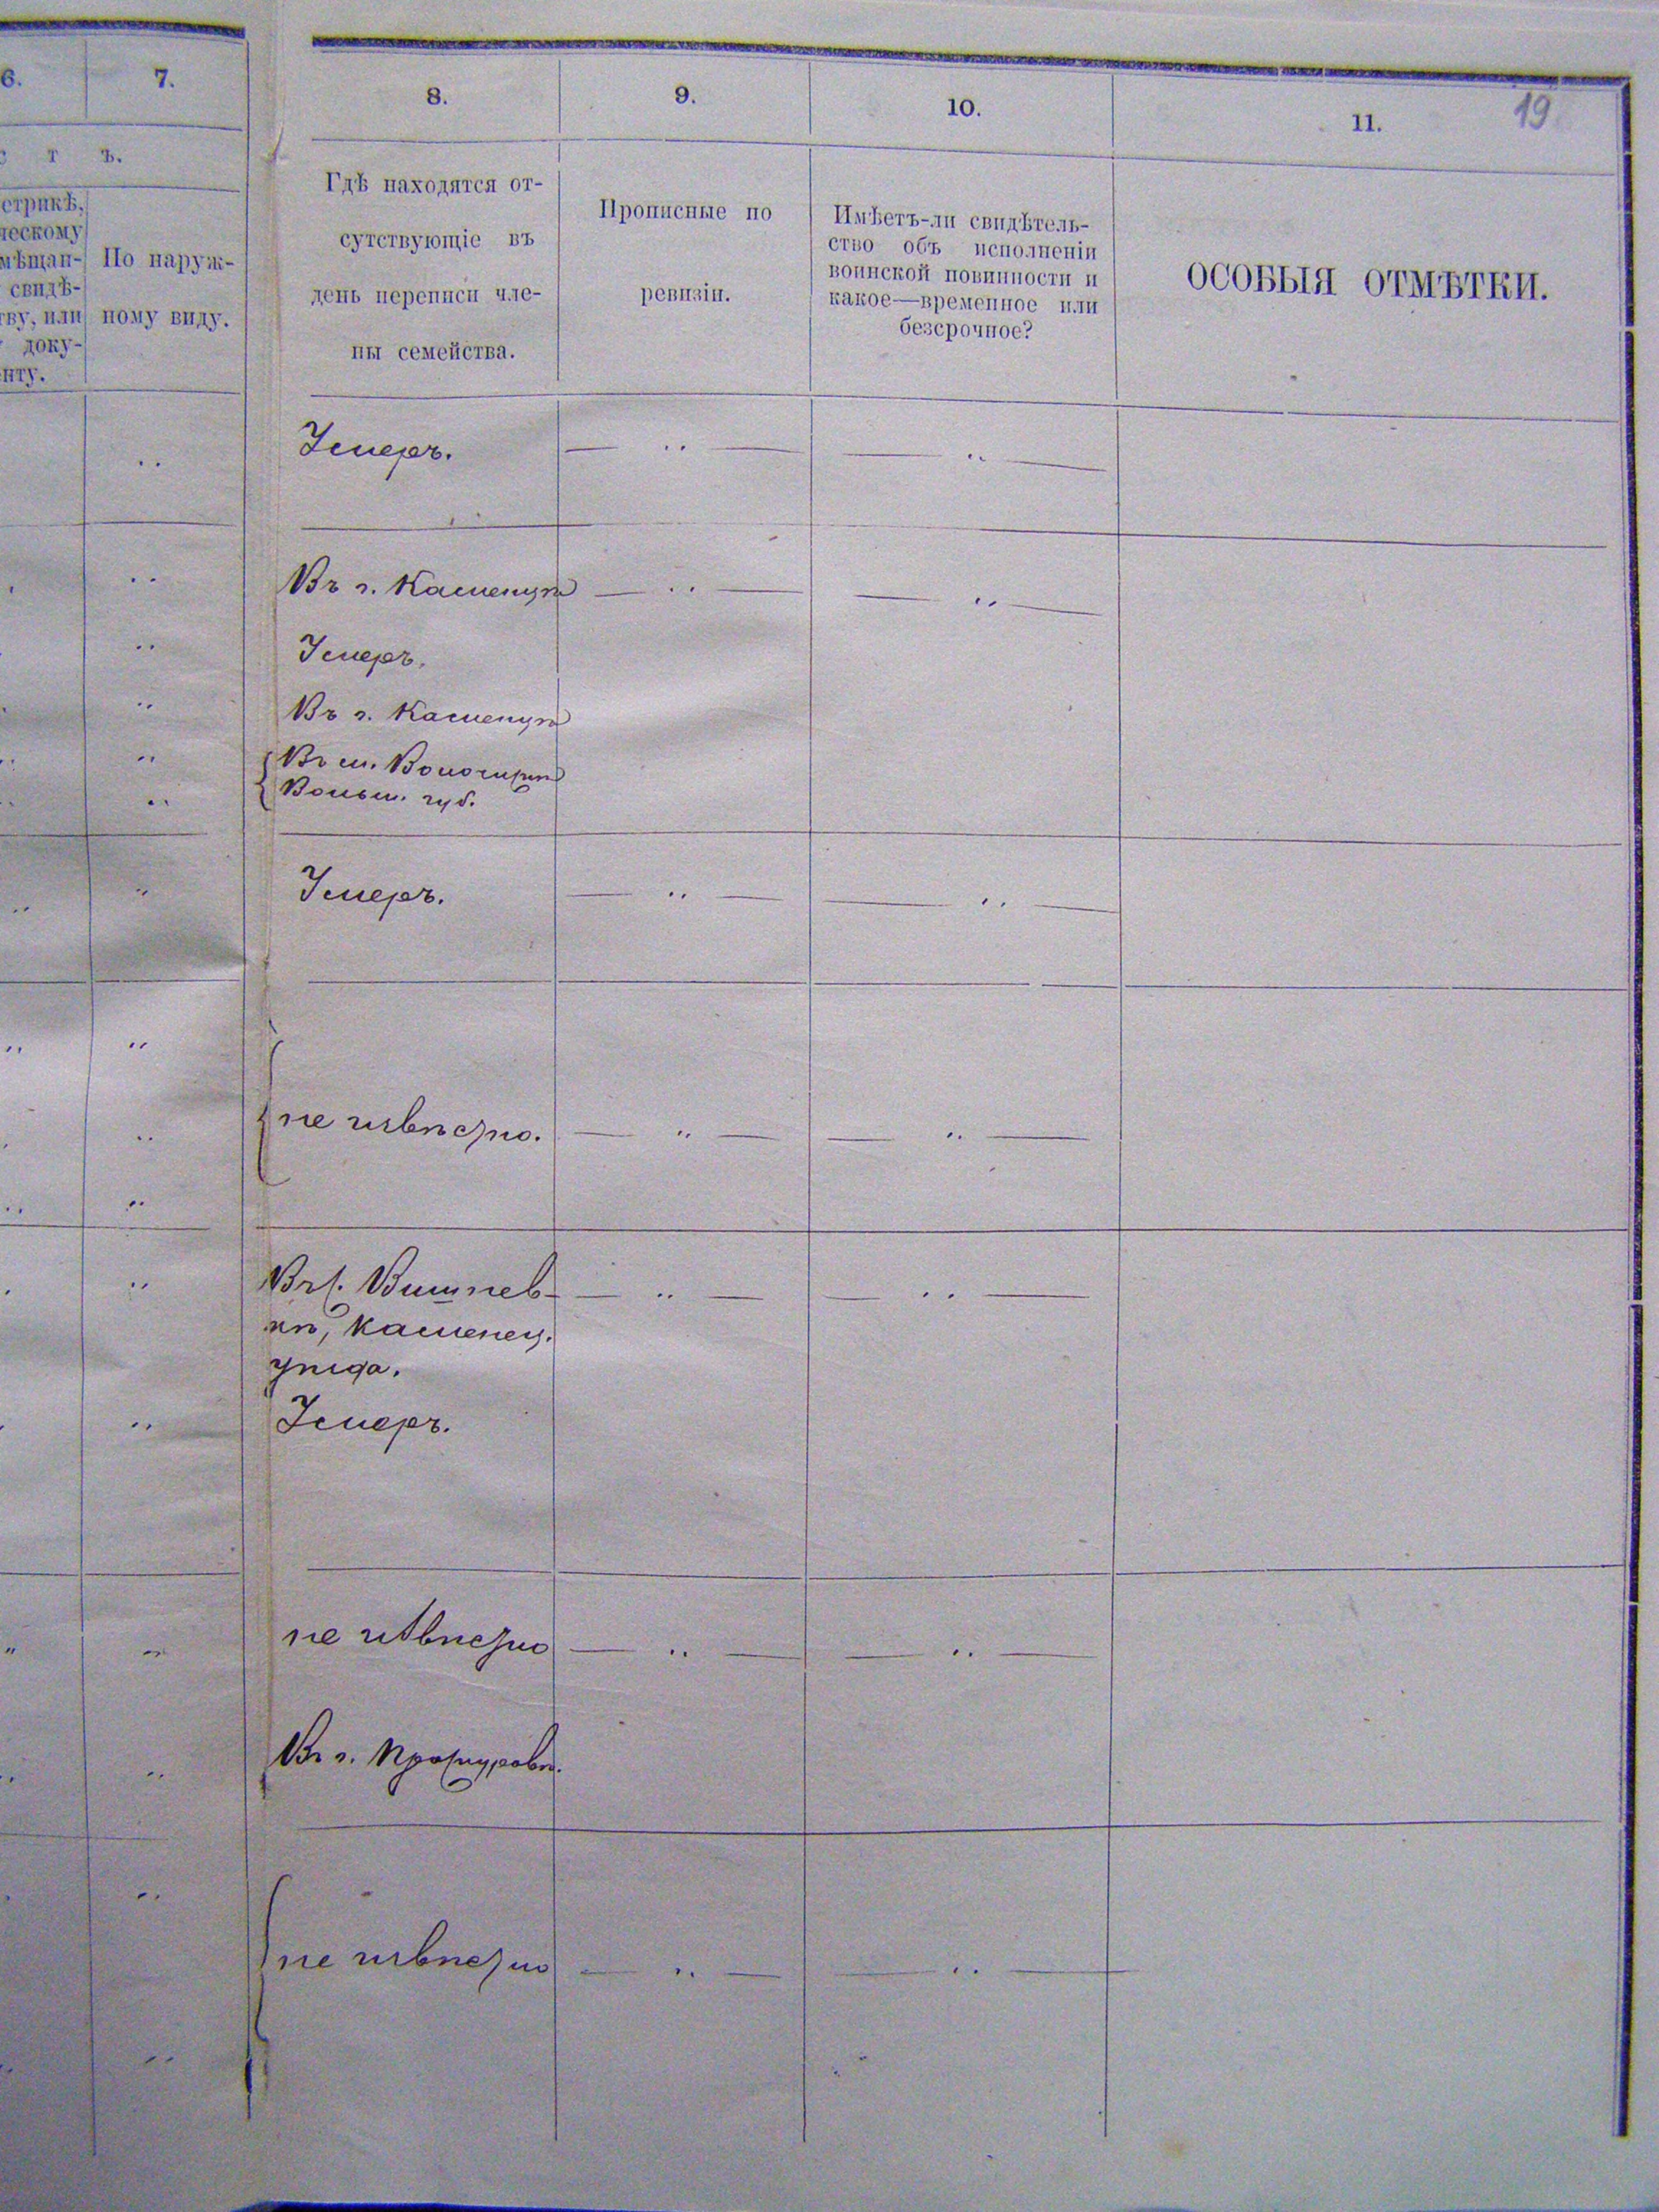 6.
7.
т ъ.
етрикѣ,
ческому
мѣщан-
свидѣ-
тву, или
доку-
нту.
По наруж-
ному виду.
8.
9.
10.
11.
19
Гдѣ находятся от-
сутствующіе въ
день переписи чле-
ны семейства.
Прописные по
ревизіи.
Имѣетъ-ли свидѣтель-
ство объ исполненіи
воинской повинности и
какое—временное или
безсрочное?
ОСОБЫЯ ОТМѢТКИ.
Умеръ.
Въ г. Каменцѣ
Умеръ.
Въ г. Каменцѣ
Въ м. Волочискѣ
Волын. губ.
Умеръ.
не извѣстно.
Въ с. Вишнев-
кѣ, Каменец.
уѣзда.
Умеръ.
не извѣстно
Въ г. Проскуровѣ.
не извѣстно